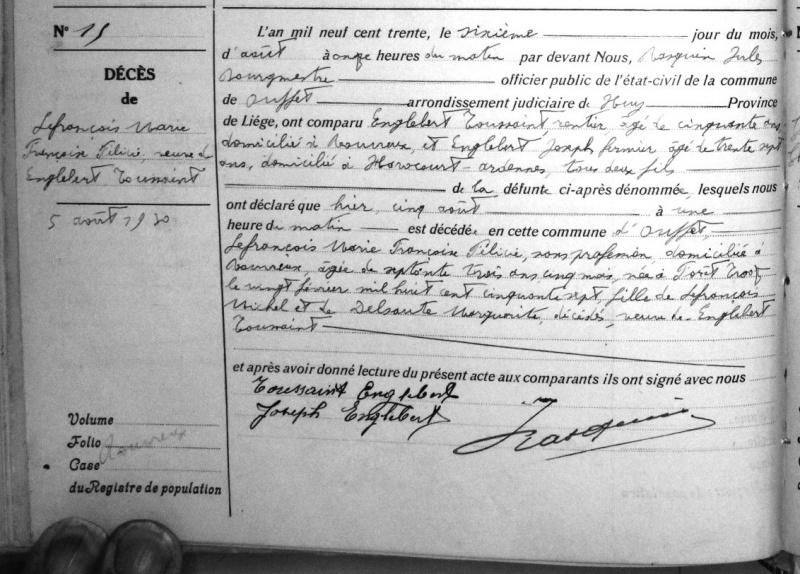 N° 15
DÉCÈS
de
Lefrançois Marie
Françoise Félicie, veuve de
Englebert Toussaint
5 août 1930
Volume
Folio
Case
du Registre de population
Rouvreux
L'an mil neuf cent trente, le sixième jour du mois,
d'août à onze heures du matin par devant Nous, Jules
Bourgmestre officier public de l'état-civil de la commune
de Ouffet arrondissement judiciaire de Huy Province
de Liége, ont comparu Englebert Toussaint rentier, âgé de cinquante ans
domicilié à Rouvreux, et Englebert Joseph fermier âgé de trente sept
ans, domicilié à ardennes, tous deux fils
de la défunte ci-après dénommée, lesquels nous
ont déclaré que hier, cinq août à une
heure du matin est décédée en cette commune d'Ouffet,
Lefrançois Marie Françoise Félicie, sans profession, domiciliée à
Rouvreux, âgée de septante trois ans, cinq mois, née à Forêt Trooz
le vingt février mil huit cent cinquante sept, fille de Lefrançois
Michel et de Delsaute Marguerite, décédés, veuve de Englebert
Toussaint
et après avoir donné lecture du présent acte aux comparants ils ont signé avec nous
Toussaint Englebert
Joseph Englebert